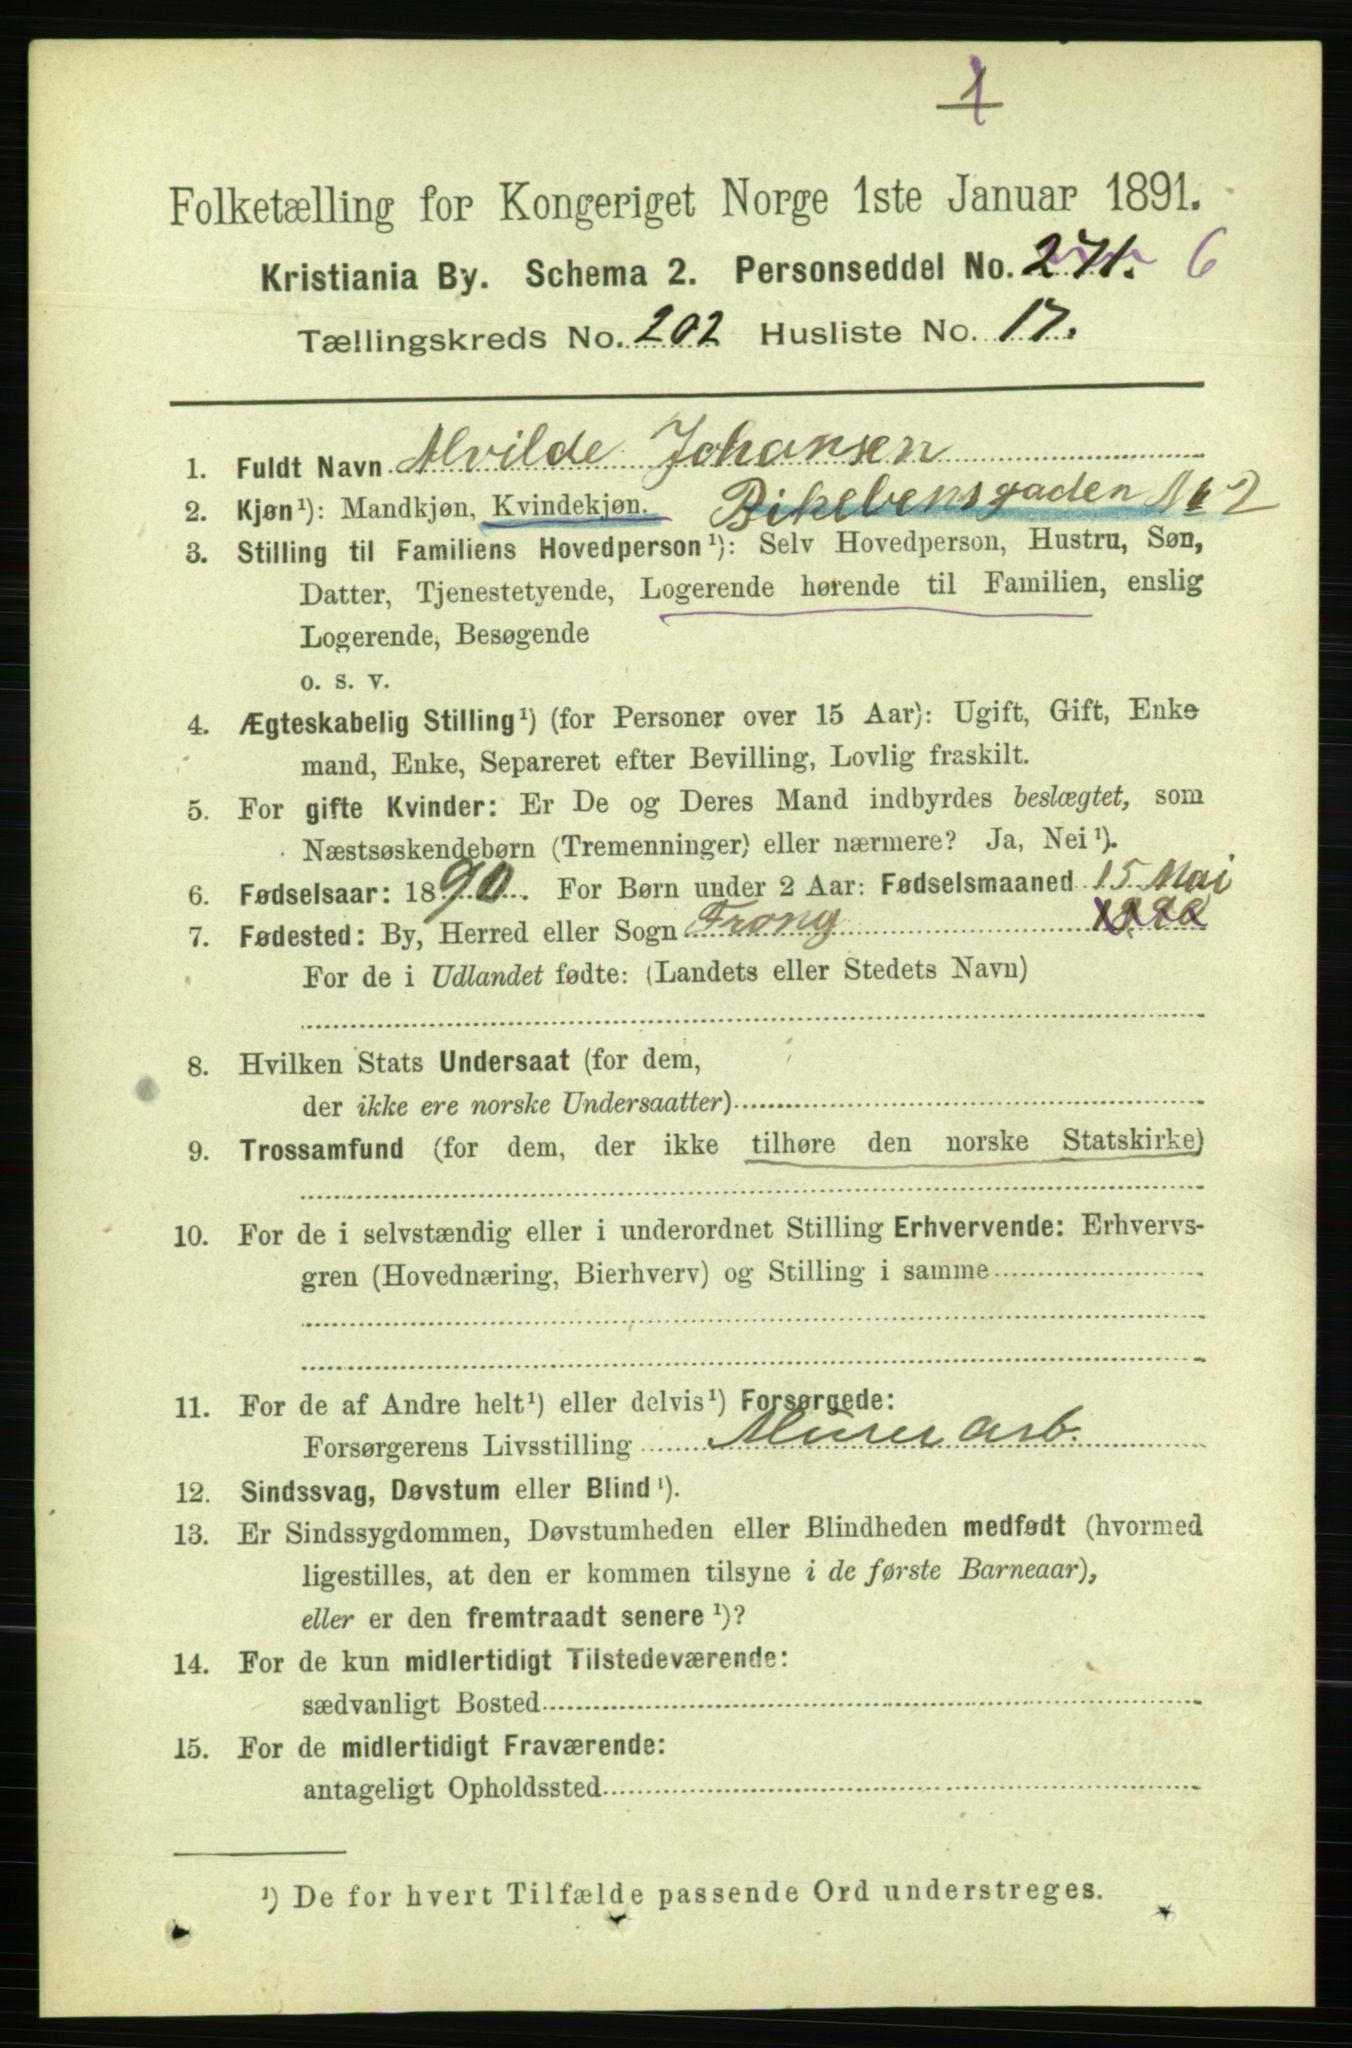 1
Folketælling for Kongeriget Norge 1ste Januar 1891.
Kristiania By. Schema 2. Personseddel No. 271. 6
Tællingskreds No. 202 Husliste No. 17.
1. Fuldt Navn Alvilde Johansen
2. Kjøn¹): Mandkjøn, Kvindekjøn. Bikebensgaden No 2
3. Stilling til Familiens Hovedperson¹): Selv Hovedperson, Hustru, Søn,
Datter, Tjenestetyende, Logerende hørende til Familien, enslig
Logerende, Besøgende
o. s. v.
4. Ægteskabelig Stilling¹) (for Personer over 15 Aar): Ugift, Gift, Enke
mand, Enke, Separeret efter Bevilling, Lovlig fraskilt.
5. For gifte Kvinder: Er De og Deres Mand indbyrdes beslægtet, som
Næstsøskendebørn (Tremenninger) eller nærmere? Ja, Nei¹).
6. Fødselsaar: 1890. For Børn under 2 Aar: Fødselsmaaned 15 Mai
7. Fødested: By, Herred eller Sogn Trong 1890
For de i Udlandet fødte: (Landets eller Stedets Navn)
8. Hvilken Stats Undersaat (for dem,
der ikke ere norske Undersaatter)
9. Trossamfund (for dem, der ikke tilhøre den norske Statskirke)
10. For de i selvstændig eller i underordnet Stilling Erhvervende: Erhvervs-
gren (Hovednæring, Bierhverv) og Stilling i samme
11. For de af Andre helt¹) eller delvis¹) Forsørgede:
Forsørgerens Livsstilling Murer arb.
12. Sindssvag, Døvstum eller Blind¹).
13. Er Sindssygdommen, Døvstumheden eller Blindheden medfødt (hvormed
ligestilles, at den er kommen tilsyne i de første Barneaar),
eller er den fremtraadt senere¹)?
14. For de kun midlertidigt Tilstedeværende:
sædvanligt Bosted
15. For de midlertidigt Fraværende:
antageligt Opholdssted
¹) De for hvert Tilfælde passende Ord understreges.